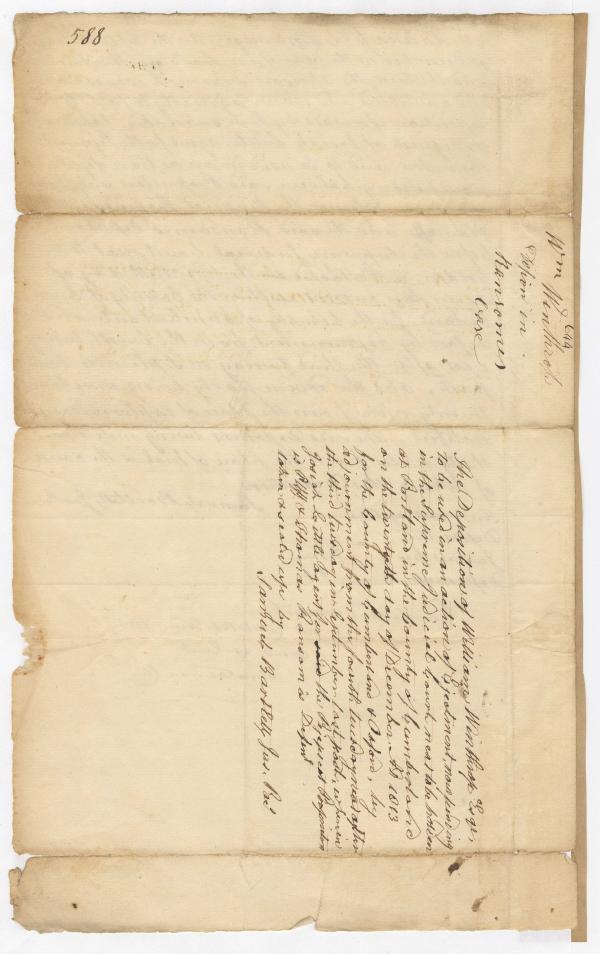 588
Wm Winthrop
Esq
Deposn in
Ransomes
Case
The Deposition of William Winthrop Esqr,
to be used in an action of Ejectment, now pending
in the Supreme Judicial Court, next to be holden
at Portland in the County of Cumberland
on the twentyth day of December AD 1813
for the County of Cumberland & Oxford, by
adjournment from the fourth tuesday next after
the third tuesday in September last past, wherein
Josiah Little agent for said the Pejepscot Proprietors
is Plff & Thomas Ransom is Defent
taken & sealed up by
Samuel Bartlett Jus. Pac